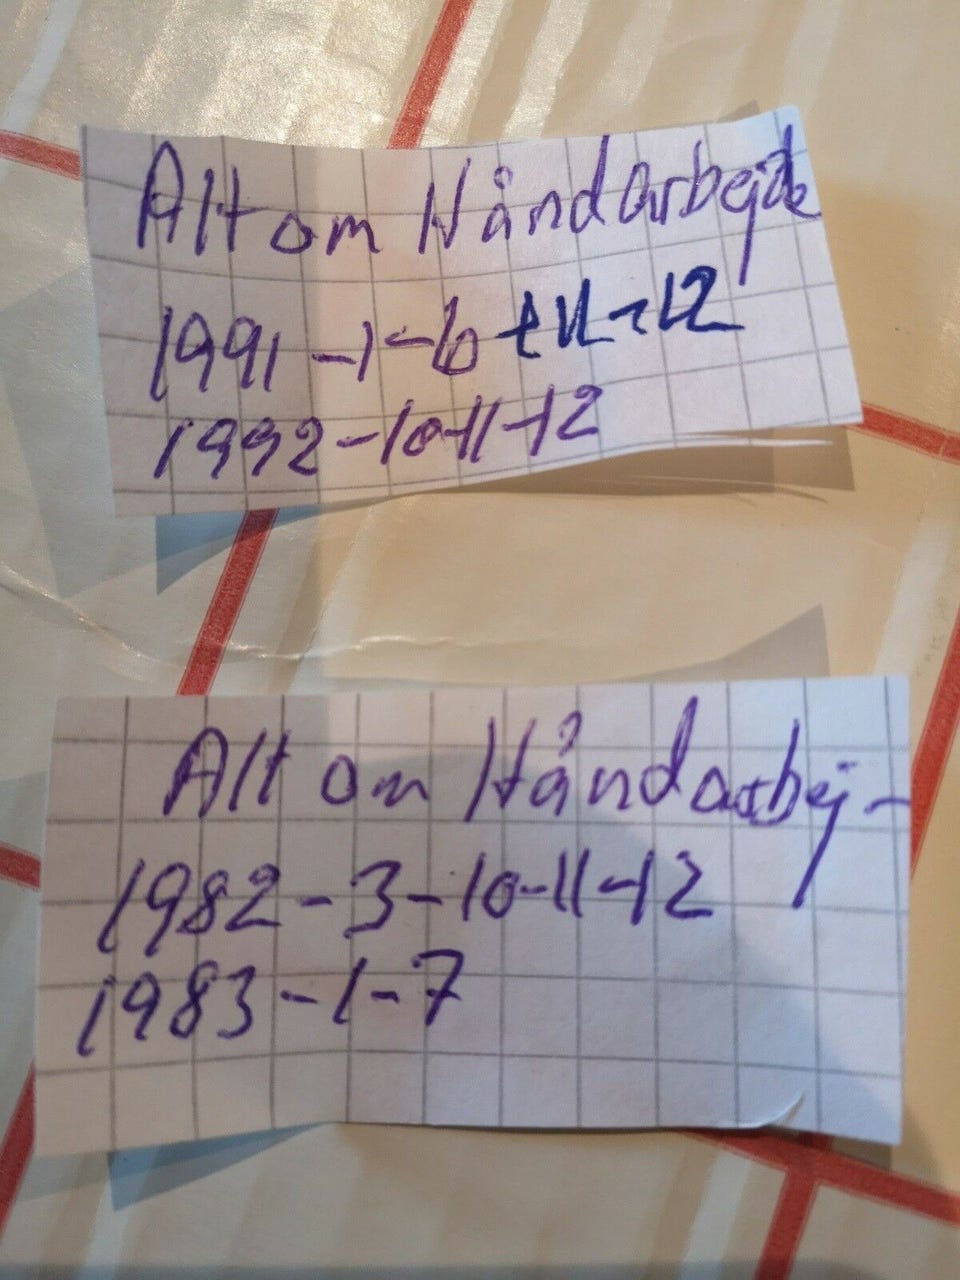 Alt om Håndarbejde
1991 -1-6 + 11-12
1992-10-11-12
Alt om Håndarbej-
1982-3-10-11-12
1983-1-7